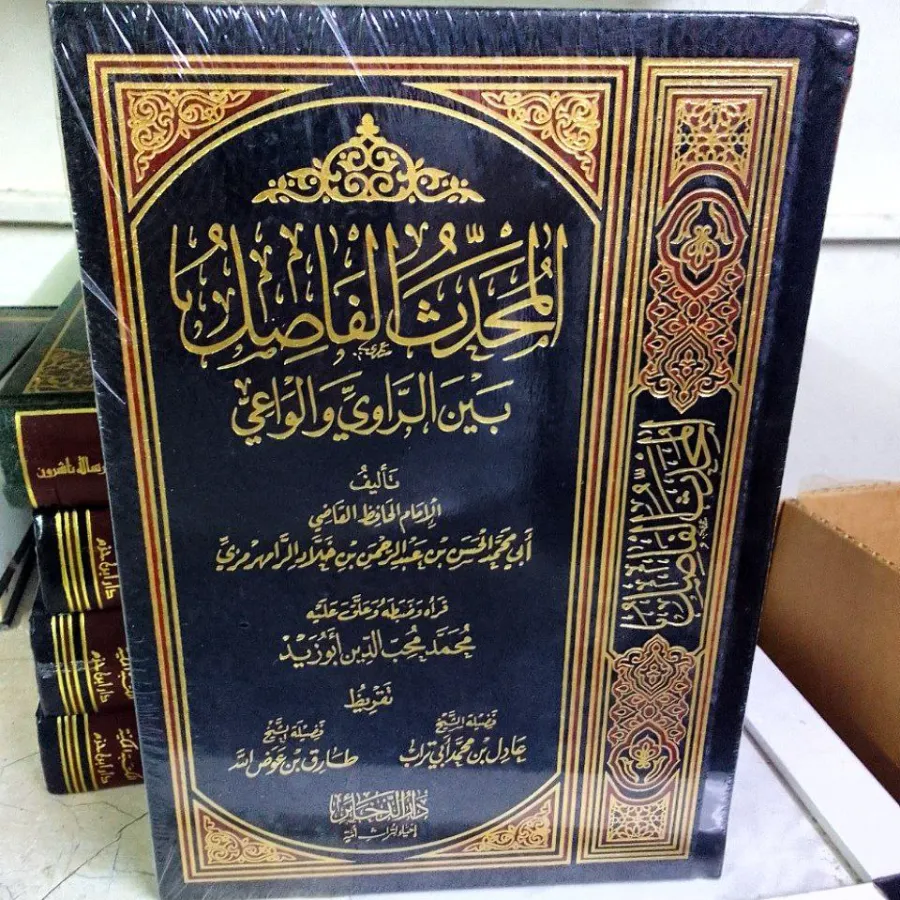 المُحَدِّثُ الفَاصِلُ
بَيْنَ الرَّاوِي وَالوَاعِي
تَأليفُ
الإمَام الحَافِظ القَاضِي
أَبِي مُحَمَّد الحَسَن بْن عَبْد الرَّحْمَن بْن خَلَّاد الرَّامهُرمُزِيِّ
قَرَأَهُ وَضَبَطَهُ وَعَلَّقَ عَلَيْه
مُحَمَّد مُحِبّ الدِّين أَبُو زَيْد
تَقْرِيظُ
فَضِيلَة الشَّيْخ
عَادِل بْن مُحَمَّد أَبِي تُرَاب
فَضِيلَة الشَّيْخ
طَارِق بْن عَوَض اللَّه
دَارُ الذَّخَائِر
إحياء لتراث أمة
المُحَدِّثُ الفَاصِلُ
ناشرون
دار ابن حزم
دار ابن حزم
دار ابن حزم